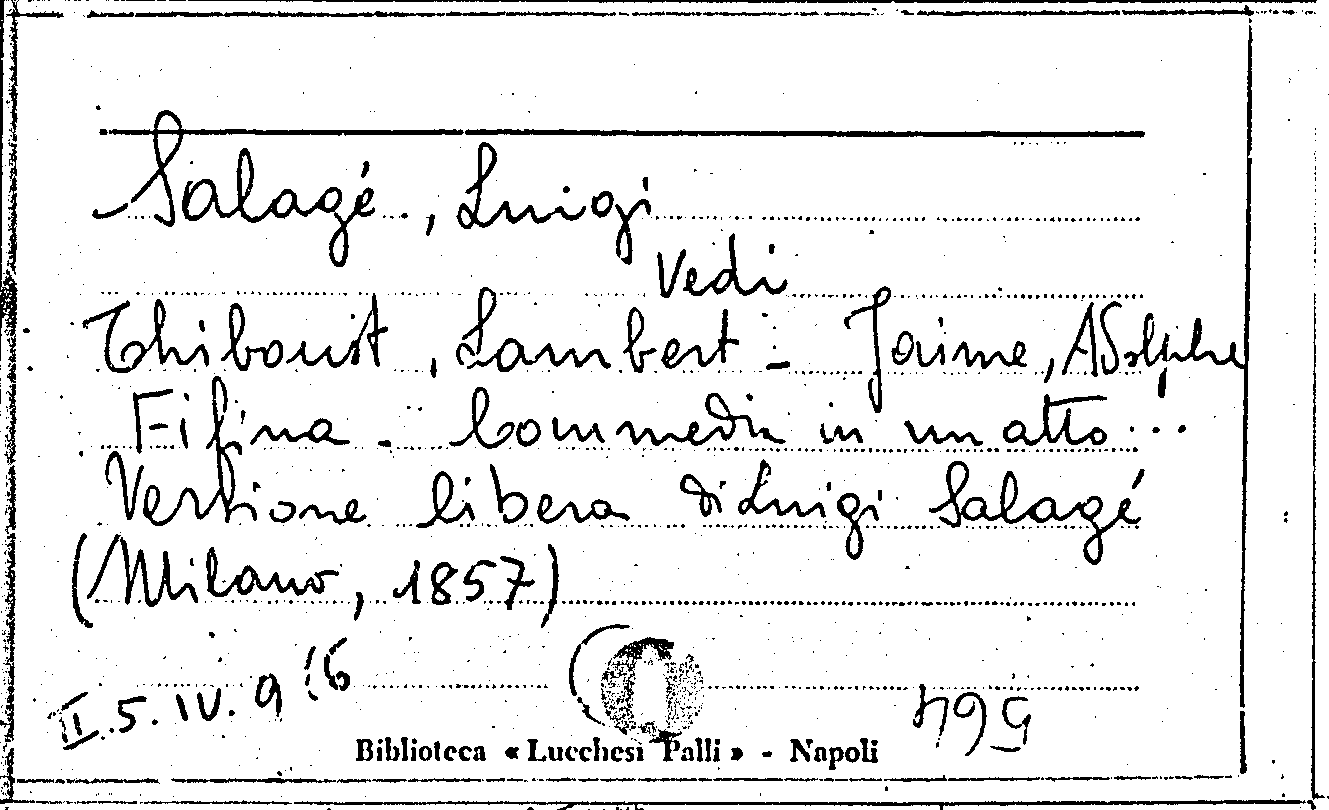 Salagé, Luigi
Vedi
Thiboust, Lambert - Jaime, Adolphe
Fifina - Commedia in un atto...
Versione libera di Luigi Salagé
(Milano, 1857)
II.5.IV.9 (6
564
Biblioteca « Lucchesi Palli » - Napoli